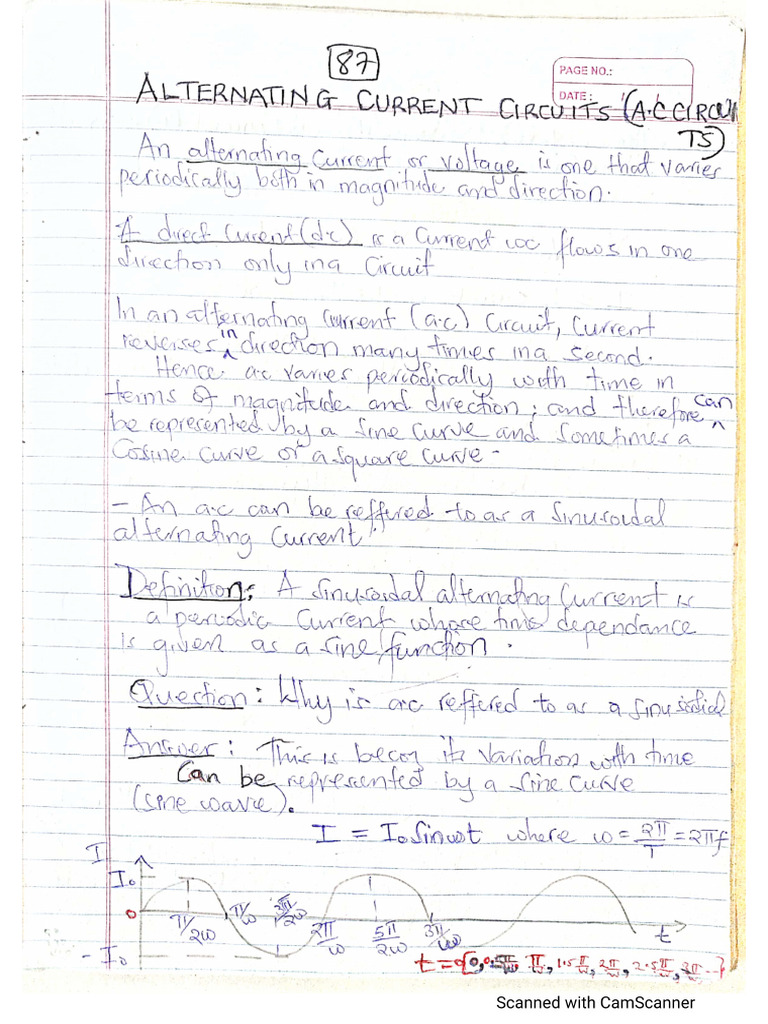 87
PAGE NO.:
DATE:
ALTERNATING CURRENT CIRCUITS (A.C CIRCUI
TS)
An alternating current or voltage is one that varies
periodically both in magnitude and direction.
A direct current (d.c) is a current wc flows in one
direction only in a circuit
In an alternating current (a.c) circuit, current
reverses in direction many times in a second.
Hence a.c varies periodically with time in
terms of magnitude and direction; and therefore can
be represented by a sine curve and sometimes a
cosine curve or a square curve -
- An a.c can be reffured to as a sinusoidal
alternating current.
Definition: A sinusoidal alternating current is
a periodic current whose time dependance
is given as a sine function.
Question: Why is a.c reffured to as a sinusoidal
Answer: This is becoz its variation with time
Can be represented by a sine curve
(sine wave).
I = I₀ sin wt where ω = 2π/T = 2πf
I
I₀
0
- I₀
π/2ω π/ω 3π/2ω 2π/ω 5π/2ω 3π/ω t
t = {0, 0.5π/ω, π/ω, 1.5π/ω, 2π/ω, 2.5π/ω, 3π/ω ...}
Scanned with CamScanner